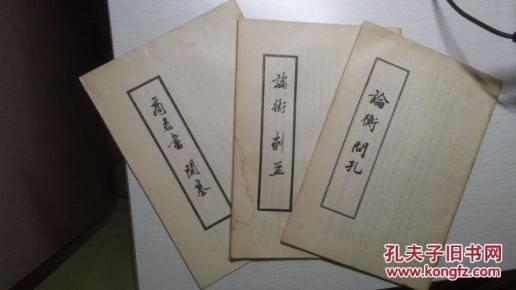 商君書 開塞
論衡 刺孟
論衡 問孔
孔夫子旧书网
www.kongfz.com